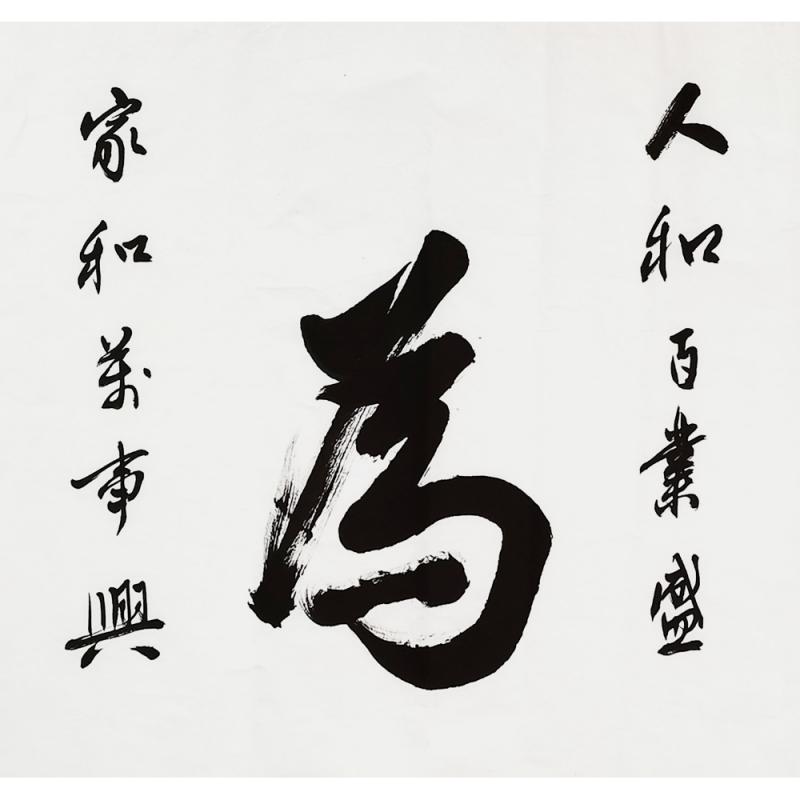 人和百業盛
為
家和萬事興